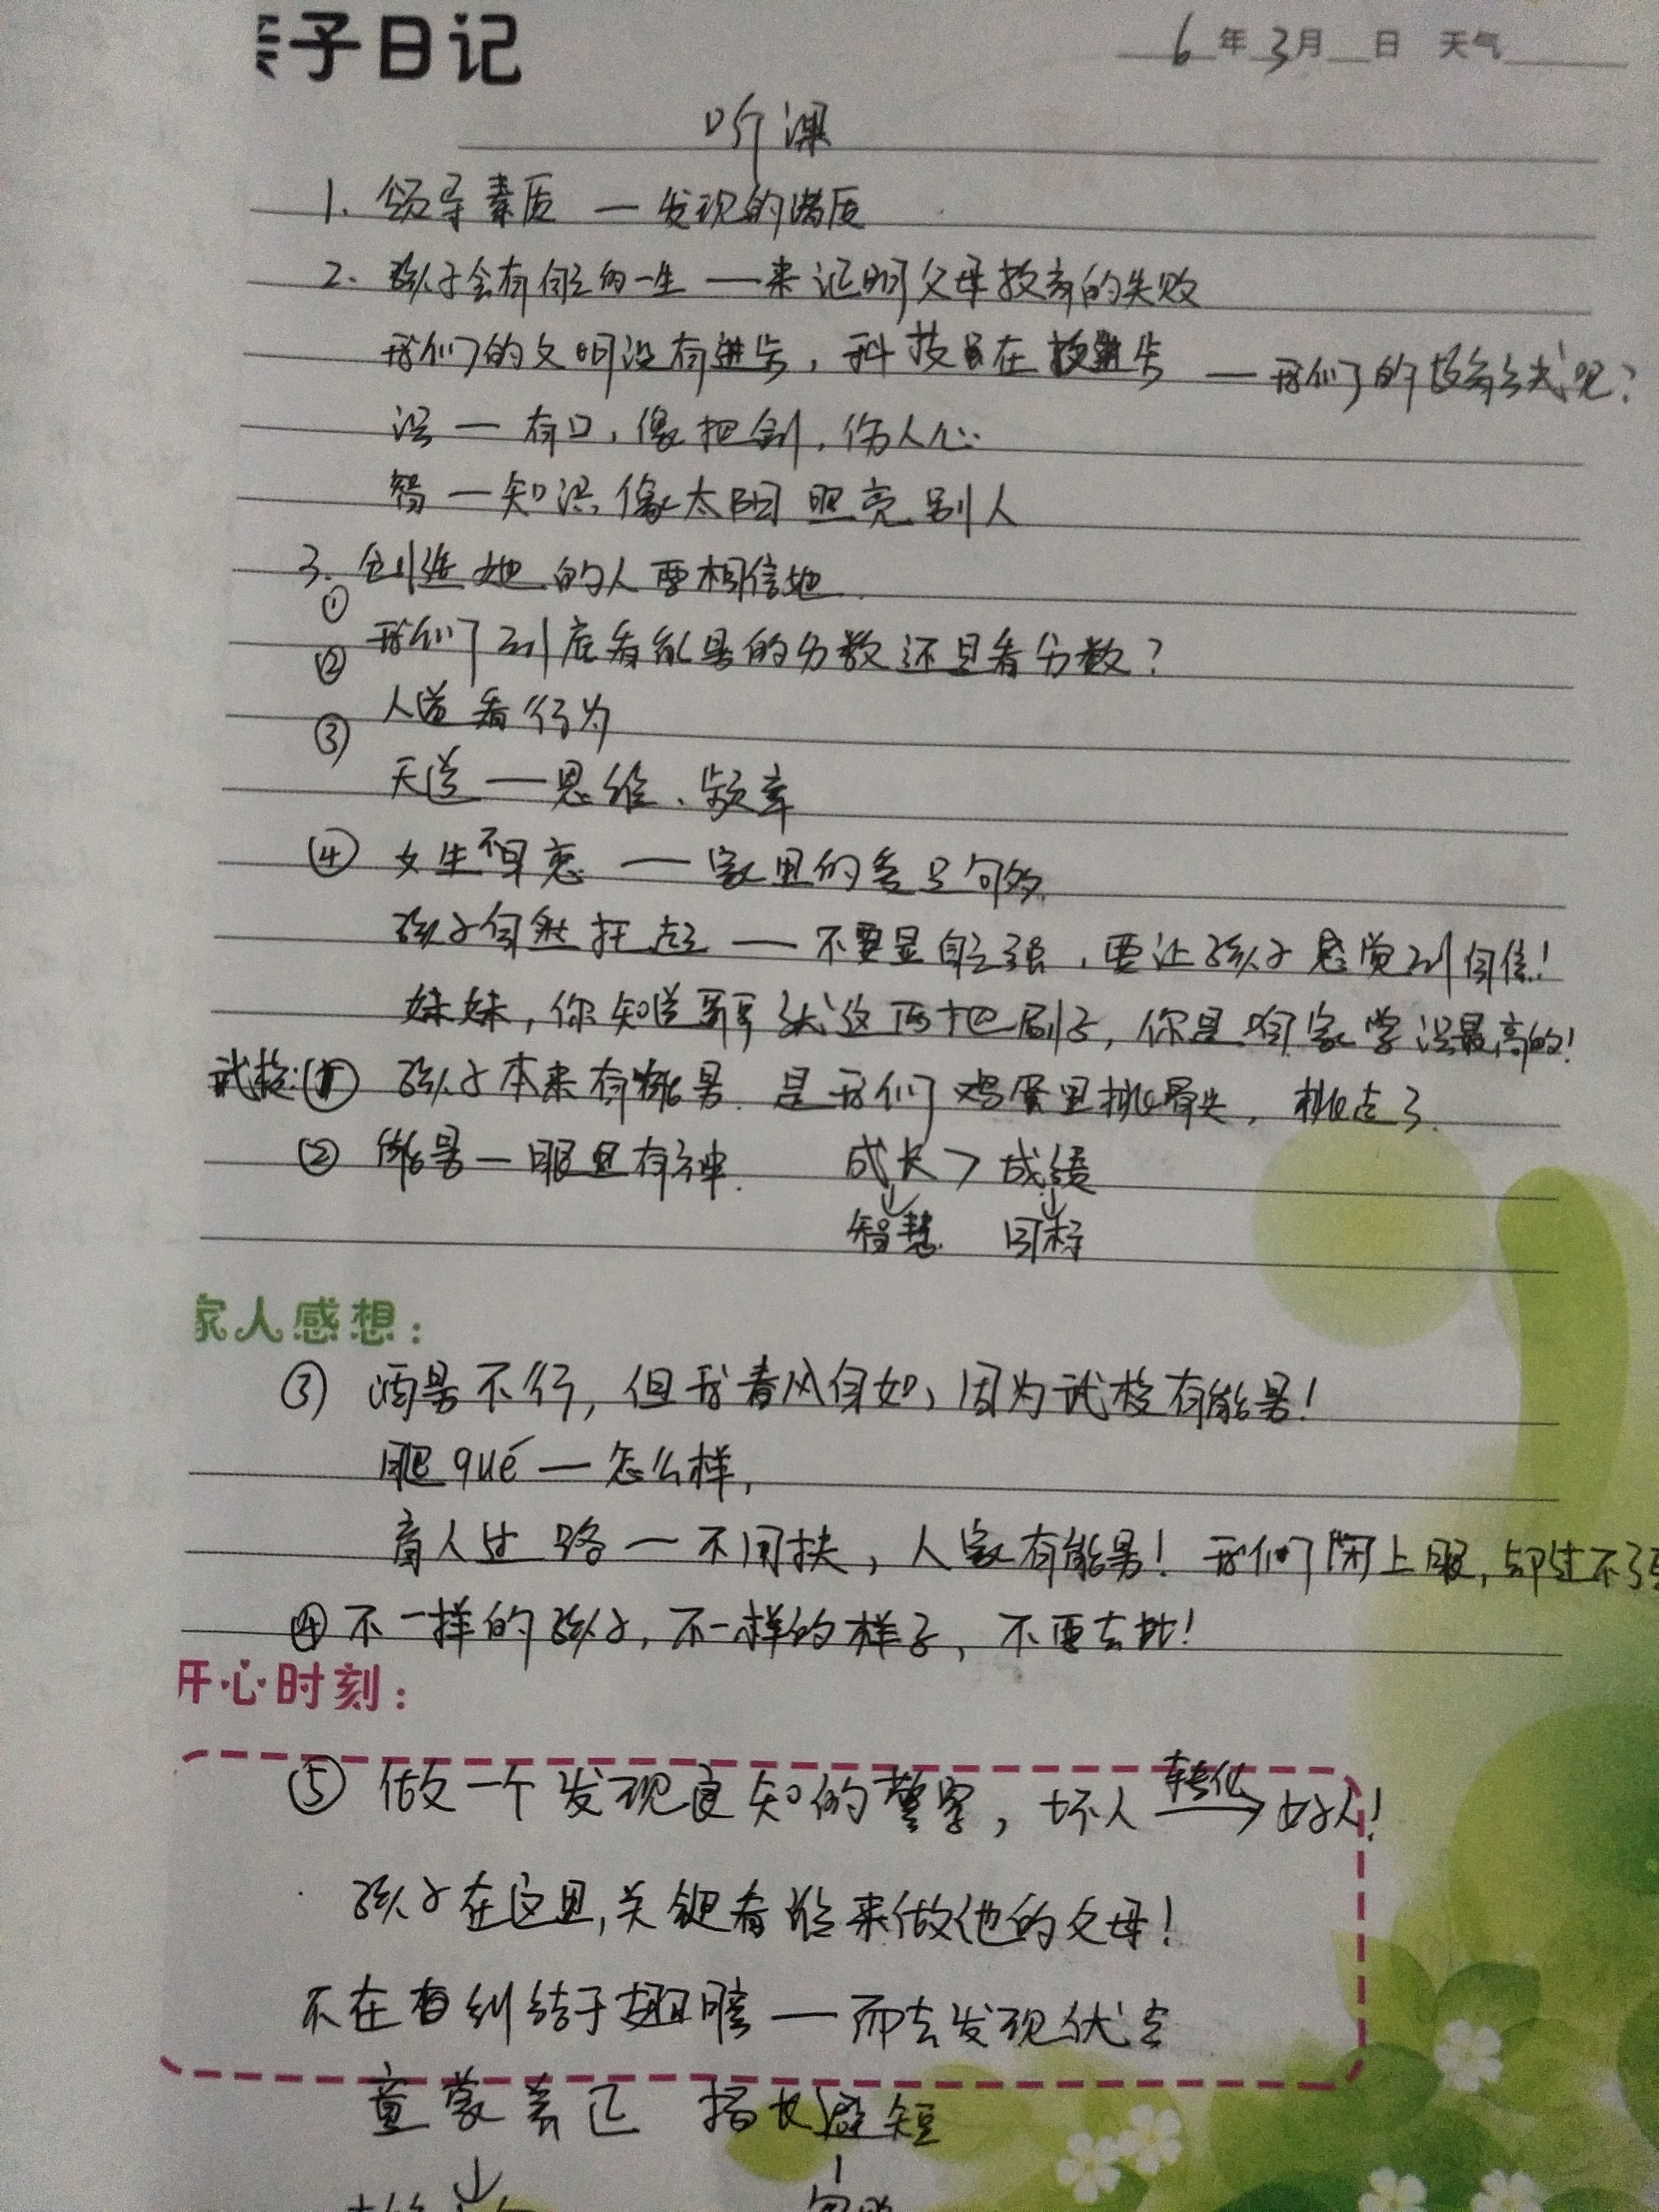 亲子日记
6年3月 日 天气
听课
1. 领导素质 — 发现的潜质
2. 孩子会有自己的一生 — 来证明父母教育的失败
我们的文明没有进步，科技是在进步 — 我们的教育方式呢？
误 — 有口，像把剑，伤人心
智 — 知识，像太阳照亮别人
3. 创造她的人要相信她
①
我们到底看能量的分数还是看分数？
②
人道看行为
③
天道 — 思维、频率
④ 女生不早恋 — 家里的爱足够多
孩子自然托起 — 不要显自己强，要让孩子感觉到自信！
妹妹，你知道哥哥就这两把刷子，你是咱家学识最高的！
武校：① 孩子本来有能量，是我们鸡蛋里挑骨头，挑走了.
② 能量 — 眼里有神. 成长 > 成绩
智慧 目标
家人感想：
③ 酒量不行，但我春风自如，因为武校有能量！
腿qué — 怎么样，
盲人过路 — 不用扶，人家有能量！我们闭上眼，却过不了
④ 不一样的孩子，不一样的样子，不要去比！
开心时刻：
⑤ 做一个发现良知的警察，坏人 转化 好人！
孩子在这里，关键看谁来做他的父母！
不在纠结于翅膀 — 而去发现优点
童蒙养正 扬长避短